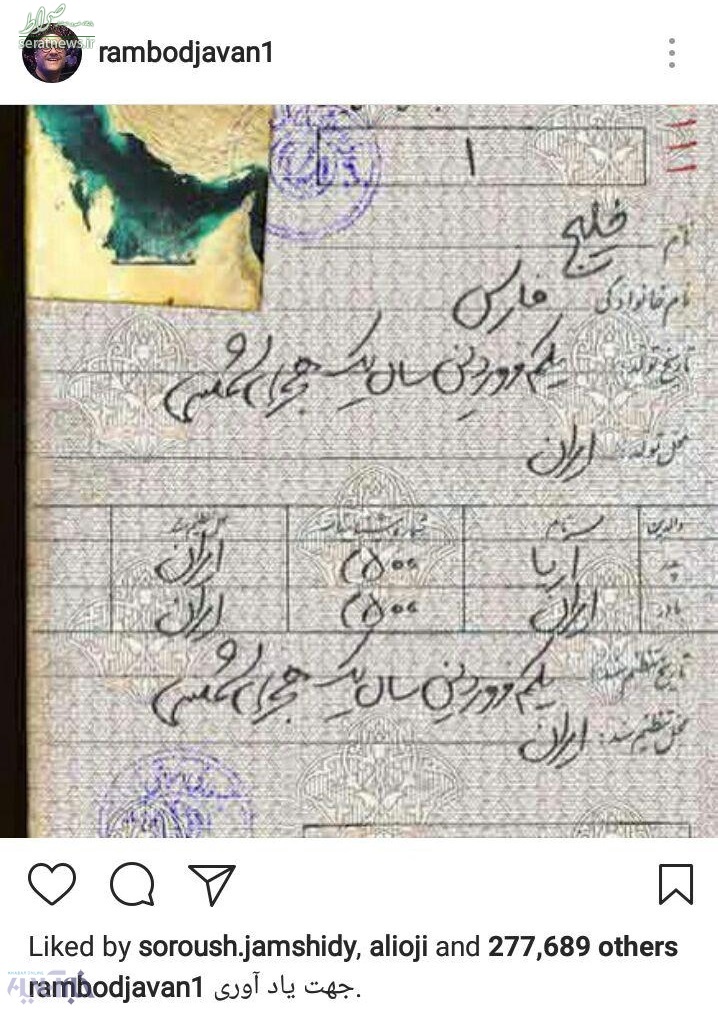 صراط
seratnews.ir
rambodjavan1
۱
نام خلیج
نام خانوادگی فارس
تاریخ تولد: یکم فروردین سال یک هجری شمسی
محل تولد: ایران
والدین نام شماره شناسنامه محل تنظیم سند
پدر آریا ۲۵۰۰ ایران
مادر ایران ۲۵۰۰ ایران
تاریخ تنظیم سند: یکم فروردین سال یک هجری شمسی
محل تنظیم سند: ایران
Liked by soroush.jamshidy, alioji and 277,689 others
rambodjavan1 جهت یاد آوری.